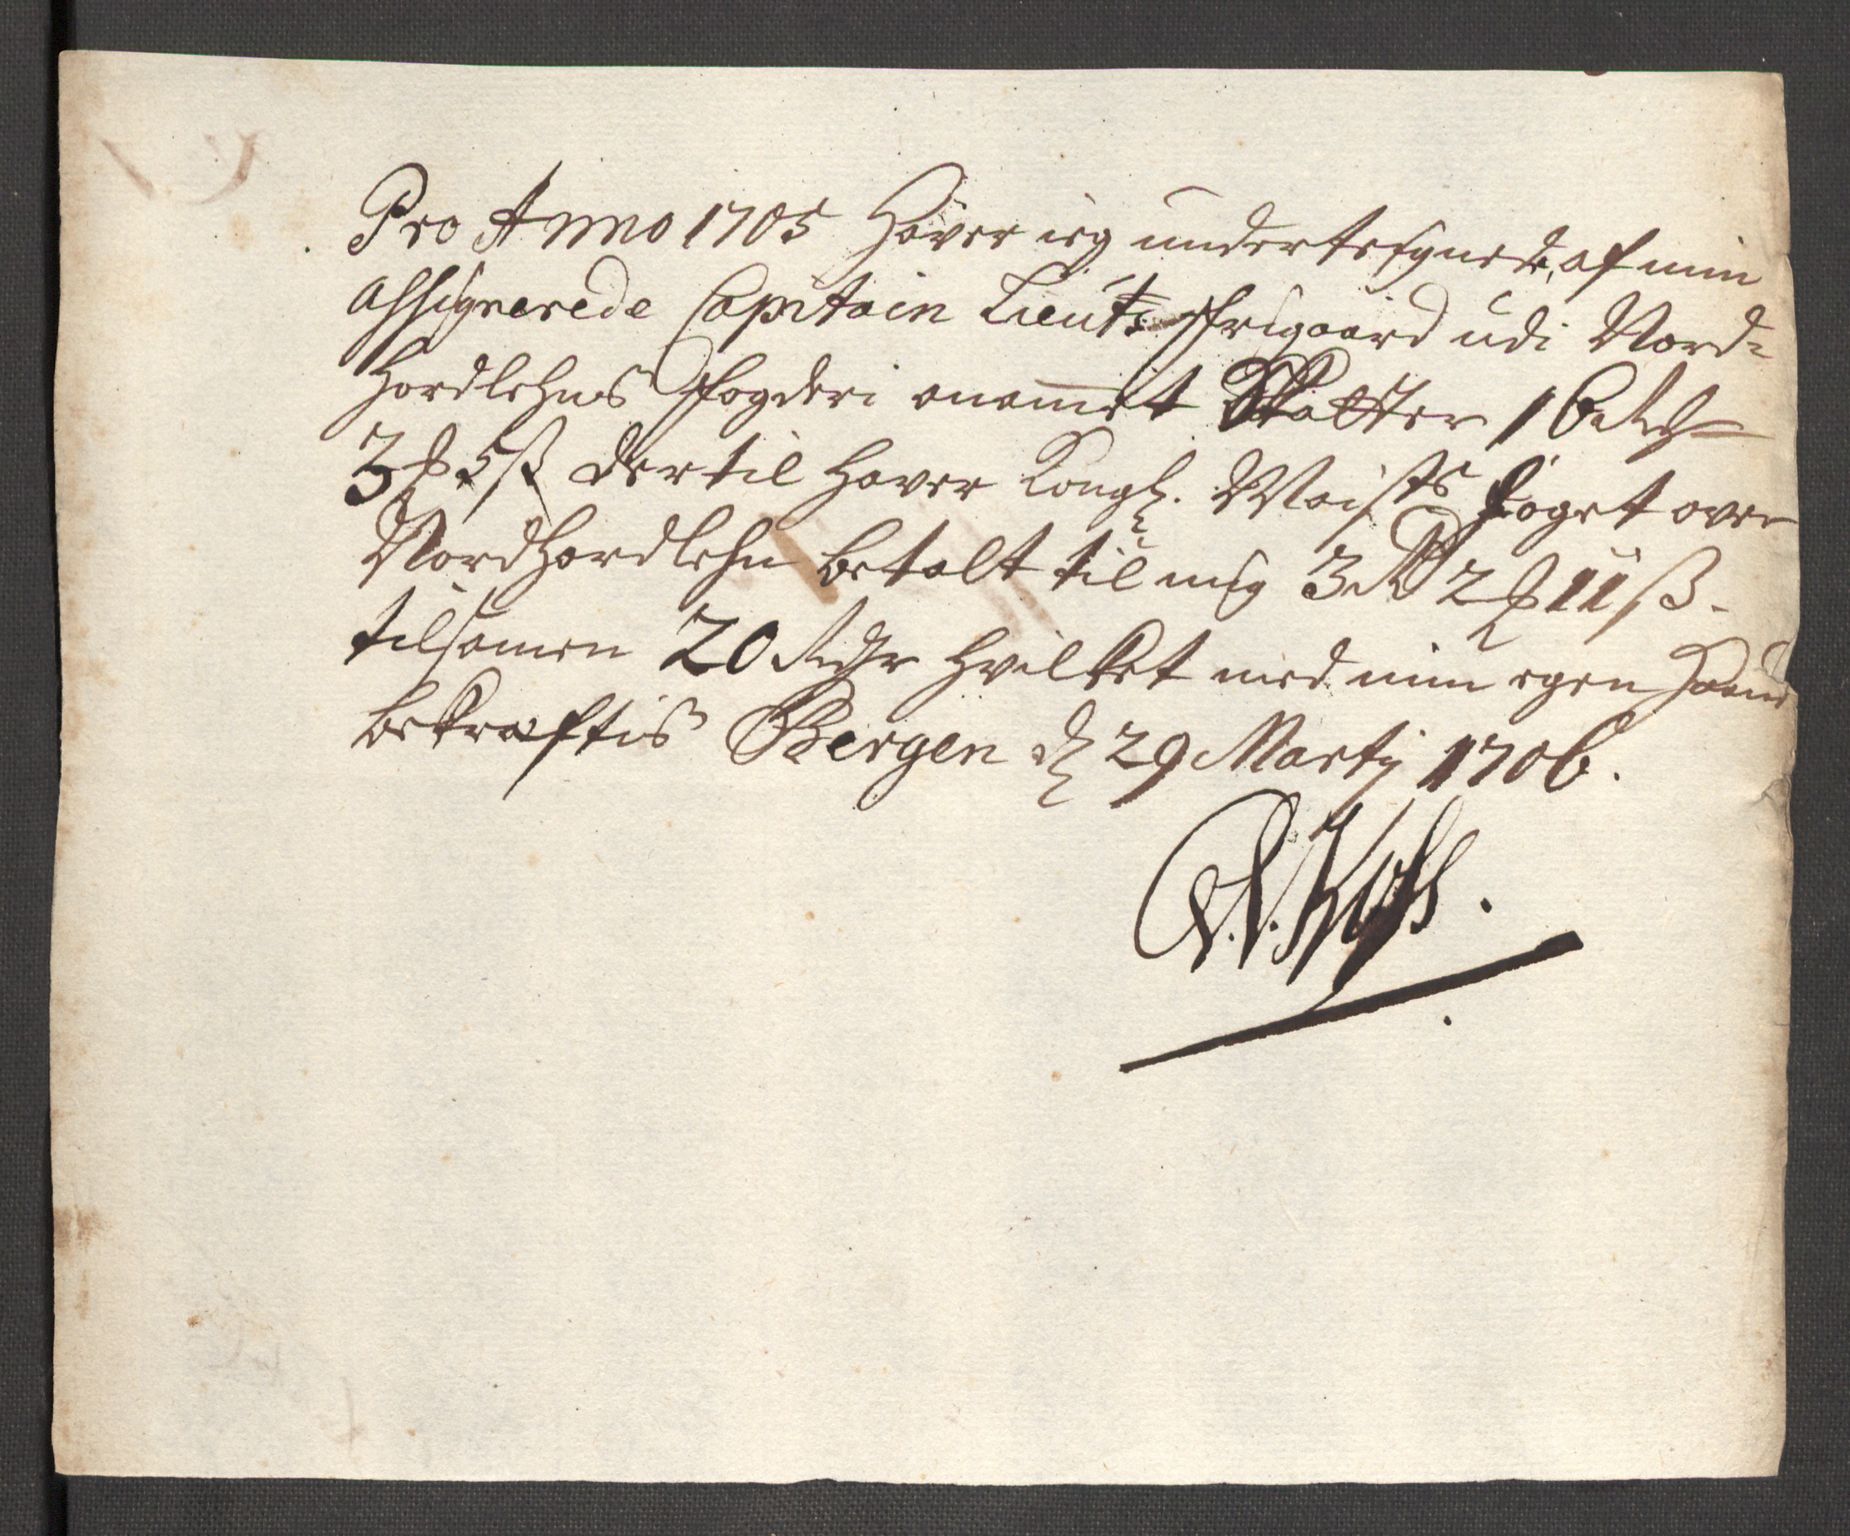 Pro Anno 1705 Haver ieg undertegnede, af min
Assignerede Capitain Lieut: Frigaard udi Nord-
Hordlehns Fogderi anammet Skatter 16 Rd
3 ₰ 5 ß der til haver Kongl. Maists foget over
Nordhordlehn betalt til mig 3 Rd 2 ₰ 11 ß.
tilsamen 20 Rdr hvilket med min egen Haand
bekræftis Bergen d 29 Martij 1706.